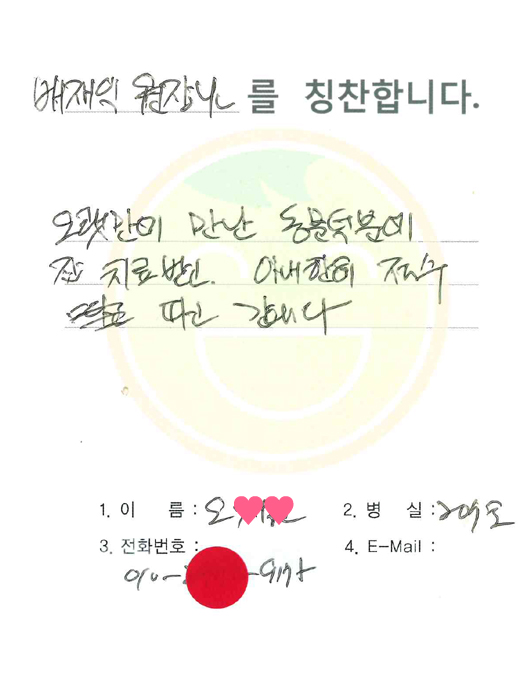 배재익 원장님 를 칭찬합니다.
오랫만에 만난 동문덕분에
잘 치료받고. 아내한테 점수
따고 갑니다
1. 이 름 : 오
2. 병 실 : 209호
3. 전화번호 :
4. E-Mail :
010-